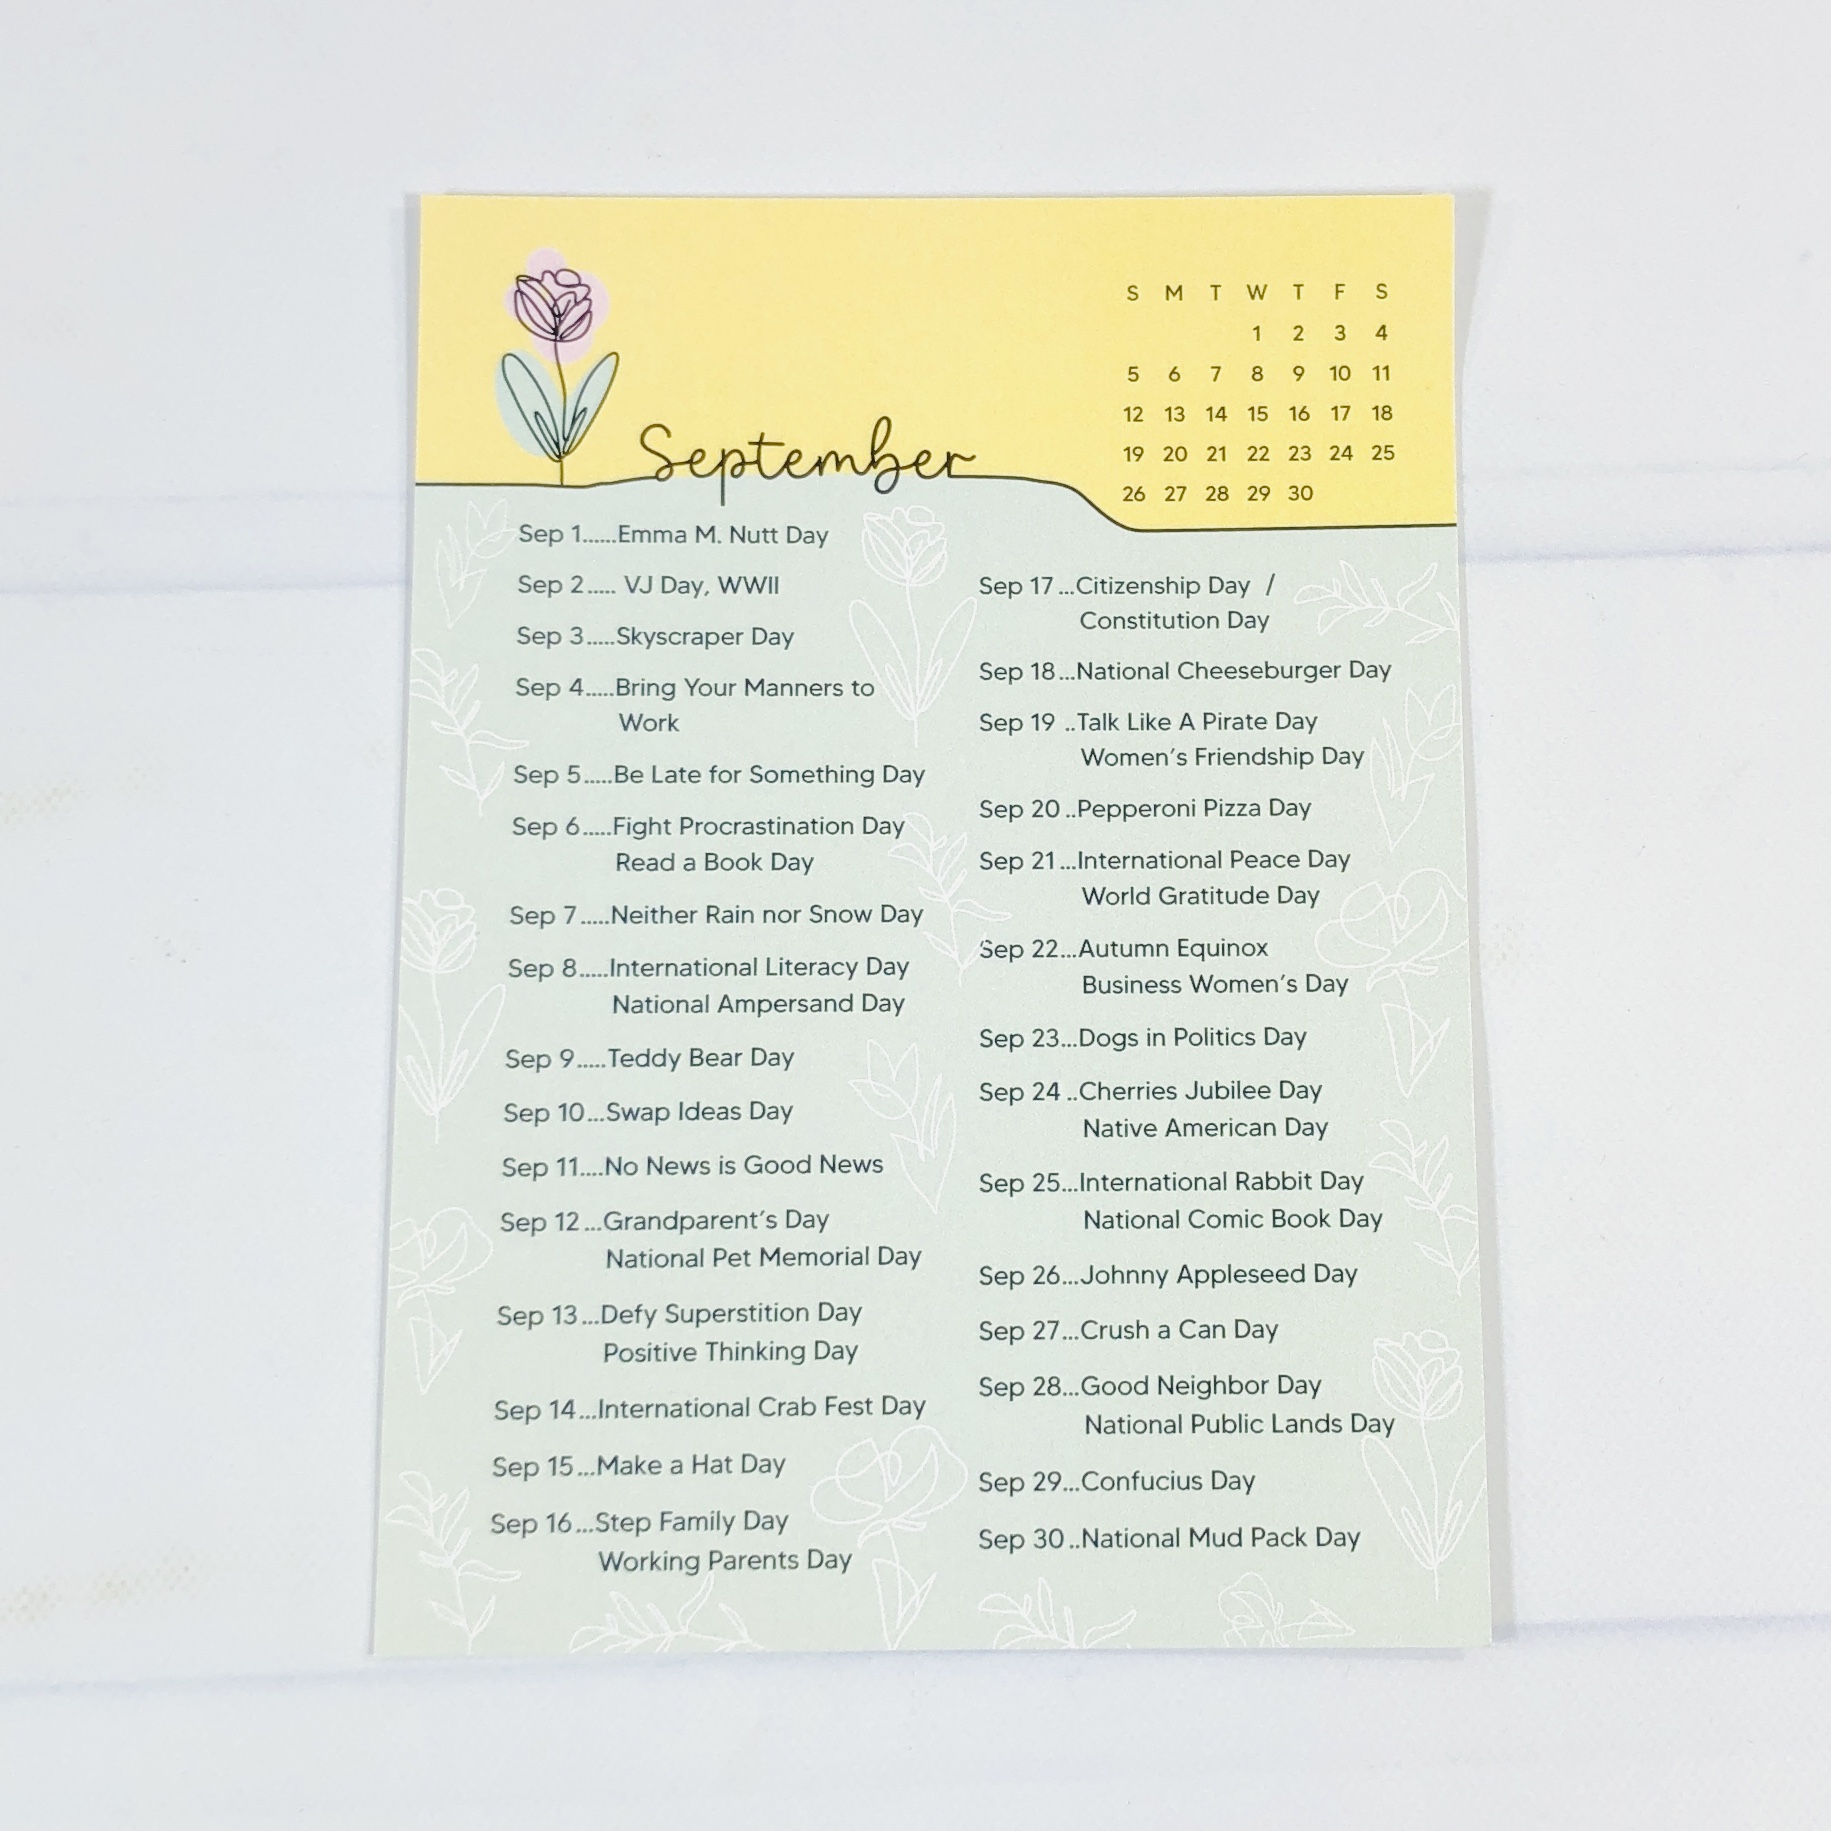 September
S M T W T F S
1 2 3 4
5 6 7 8 9 10 11
12 13 14 15 16 17 18
19 20 21 22 23 24 25
26 27 28 29 30
Sep 1......Emma M. Nutt Day
Sep 2..... VJ Day, WWII
Sep 3.....Skyscraper Day
Sep 4.....Bring Your Manners to
Work
Sep 5.....Be Late for Something Day
Sep 6.....Fight Procrastination Day
Read a Book Day
Sep 7.....Neither Rain nor Snow Day
Sep 8.....International Literacy Day
National Ampersand Day
Sep 9.....Teddy Bear Day
Sep 10...Swap Ideas Day
Sep 11....No News is Good News
Sep 12...Grandparent's Day
National Pet Memorial Day
Sep 13...Defy Superstition Day
Positive Thinking Day
Sep 14...International Crab Fest Day
Sep 15...Make a Hat Day
Sep 16...Step Family Day
Working Parents Day
Sep 17...Citizenship Day /
Constitution Day
Sep 18...National Cheeseburger Day
Sep 19 ..Talk Like A Pirate Day
Women's Friendship Day
Sep 20..Pepperoni Pizza Day
Sep 21...International Peace Day
World Gratitude Day
Sep 22...Autumn Equinox
Business Women's Day
Sep 23...Dogs in Politics Day
Sep 24..Cherries Jubilee Day
Native American Day
Sep 25...International Rabbit Day
National Comic Book Day
Sep 26...Johnny Appleseed Day
Sep 27...Crush a Can Day
Sep 28...Good Neighbor Day
National Public Lands Day
Sep 29...Confucius Day
Sep 30..National Mud Pack Day